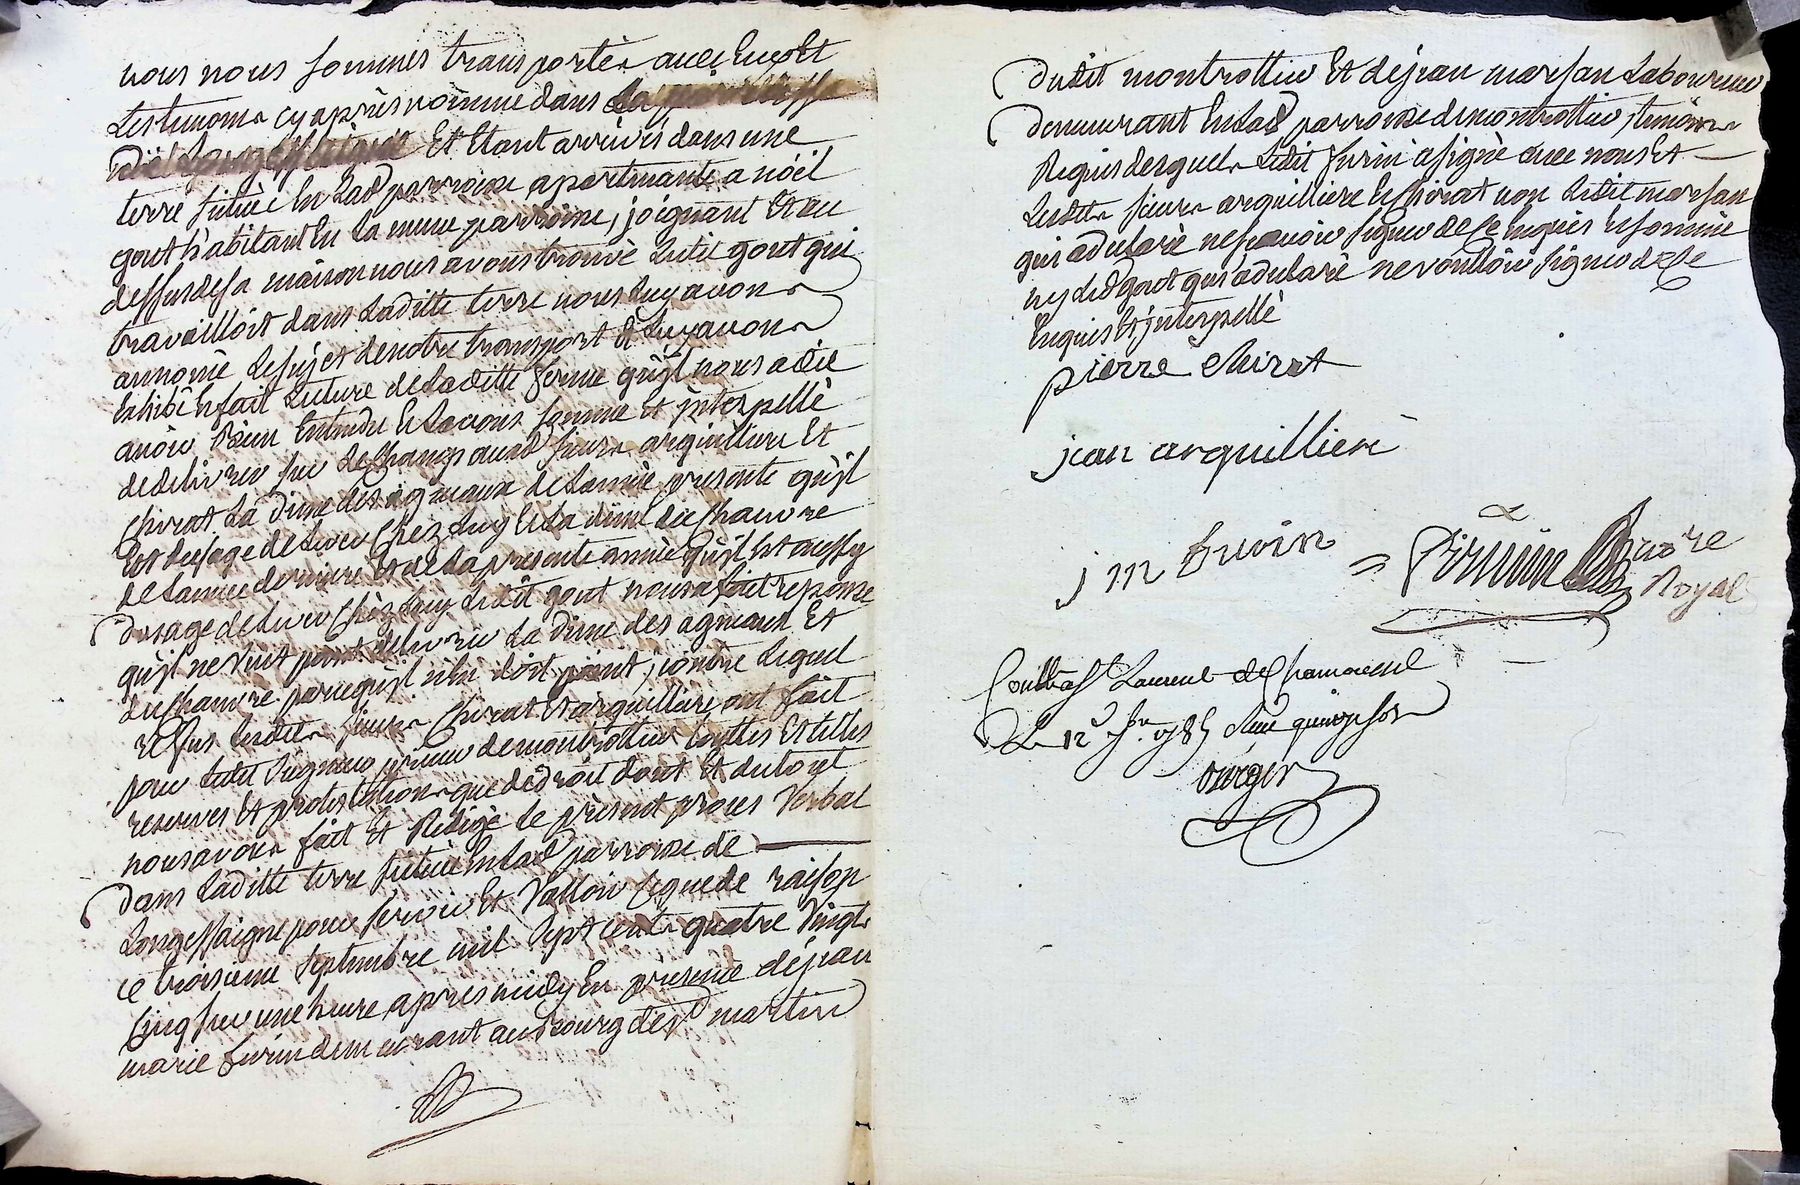 nous nous sommes transportés avec eux et
les temoins cy après nommé dans la parroisse
de Longessaigne Et Etant arrivés dans une
terre située En Lad parroisse apartenante a nöel
gout h'abitant En la meme parroisse, joignant et au
dessus de sa maison nous avons trouvé Ledit gout qui
travailloit dans Laditte terre nous Luy avons
annoncé Le sujet de notre transport et Luy avons
Exhibé En fait Lecture de Laditte ferme qu'il nous a dit
avoir Bien Entendu Et L'avons sommé Et jnterpellé
de delivrer sur le champ auxd sieurs arquilliere Et
Chirat La dime des agneaux de L'année presente qu'il
Est d'usage de Lever Chez Luy Et La dime du Chanvre
de L'année derniere Et de La presente année qu'il Est aussy
d'usage de Lever Chez Luy Ledit gout nous a fait reponse
qu'il ne veut point delivrer La dime des agneaux Et
du Chanvre parcequ'il n'En doit point, contre Lequel
refus Lesdits sieurs Chirat Et arquilliere ont fait
pour Ledit seigneur prieur de montrottier touttes Et telles
reserves Et protestations que de droit dont Et du tout
nous avons fait Et Redigé Le présent procès Verbal
dans Laditte terre située En Lad parroisse de
Longessaigne pour servir Et Valloir Ce que de raison
ce troisieme septembre mil sept cent quatre Vingt
Cinq sur une heure après midy En presence de jean
marie furin demeurant au Bourg de st martin
dudit montrottier Et de jean marsan Laboureur
demeurant En Lad parroisse de montrottier, temoins
Requis desquels Ledit furin a signé avec nous Et
Lesdits sieurs arquilliere Et Chirat non Ledit marsan
qui a declaré ne sçavoir signer de ce Enquis Et sommé
ny Led gout qui a declaré ne voulloir signer de ce
Enquis Et jnterpellé
pierre Chirat
jean arquilliere
j m furin
Royal
St Laurent de Chamousset
Le 12 7bre 1785